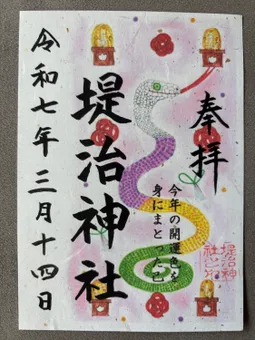 奉拝
今年の開運色を
身にまとった巳
堤治神社
令和七年三月十四日